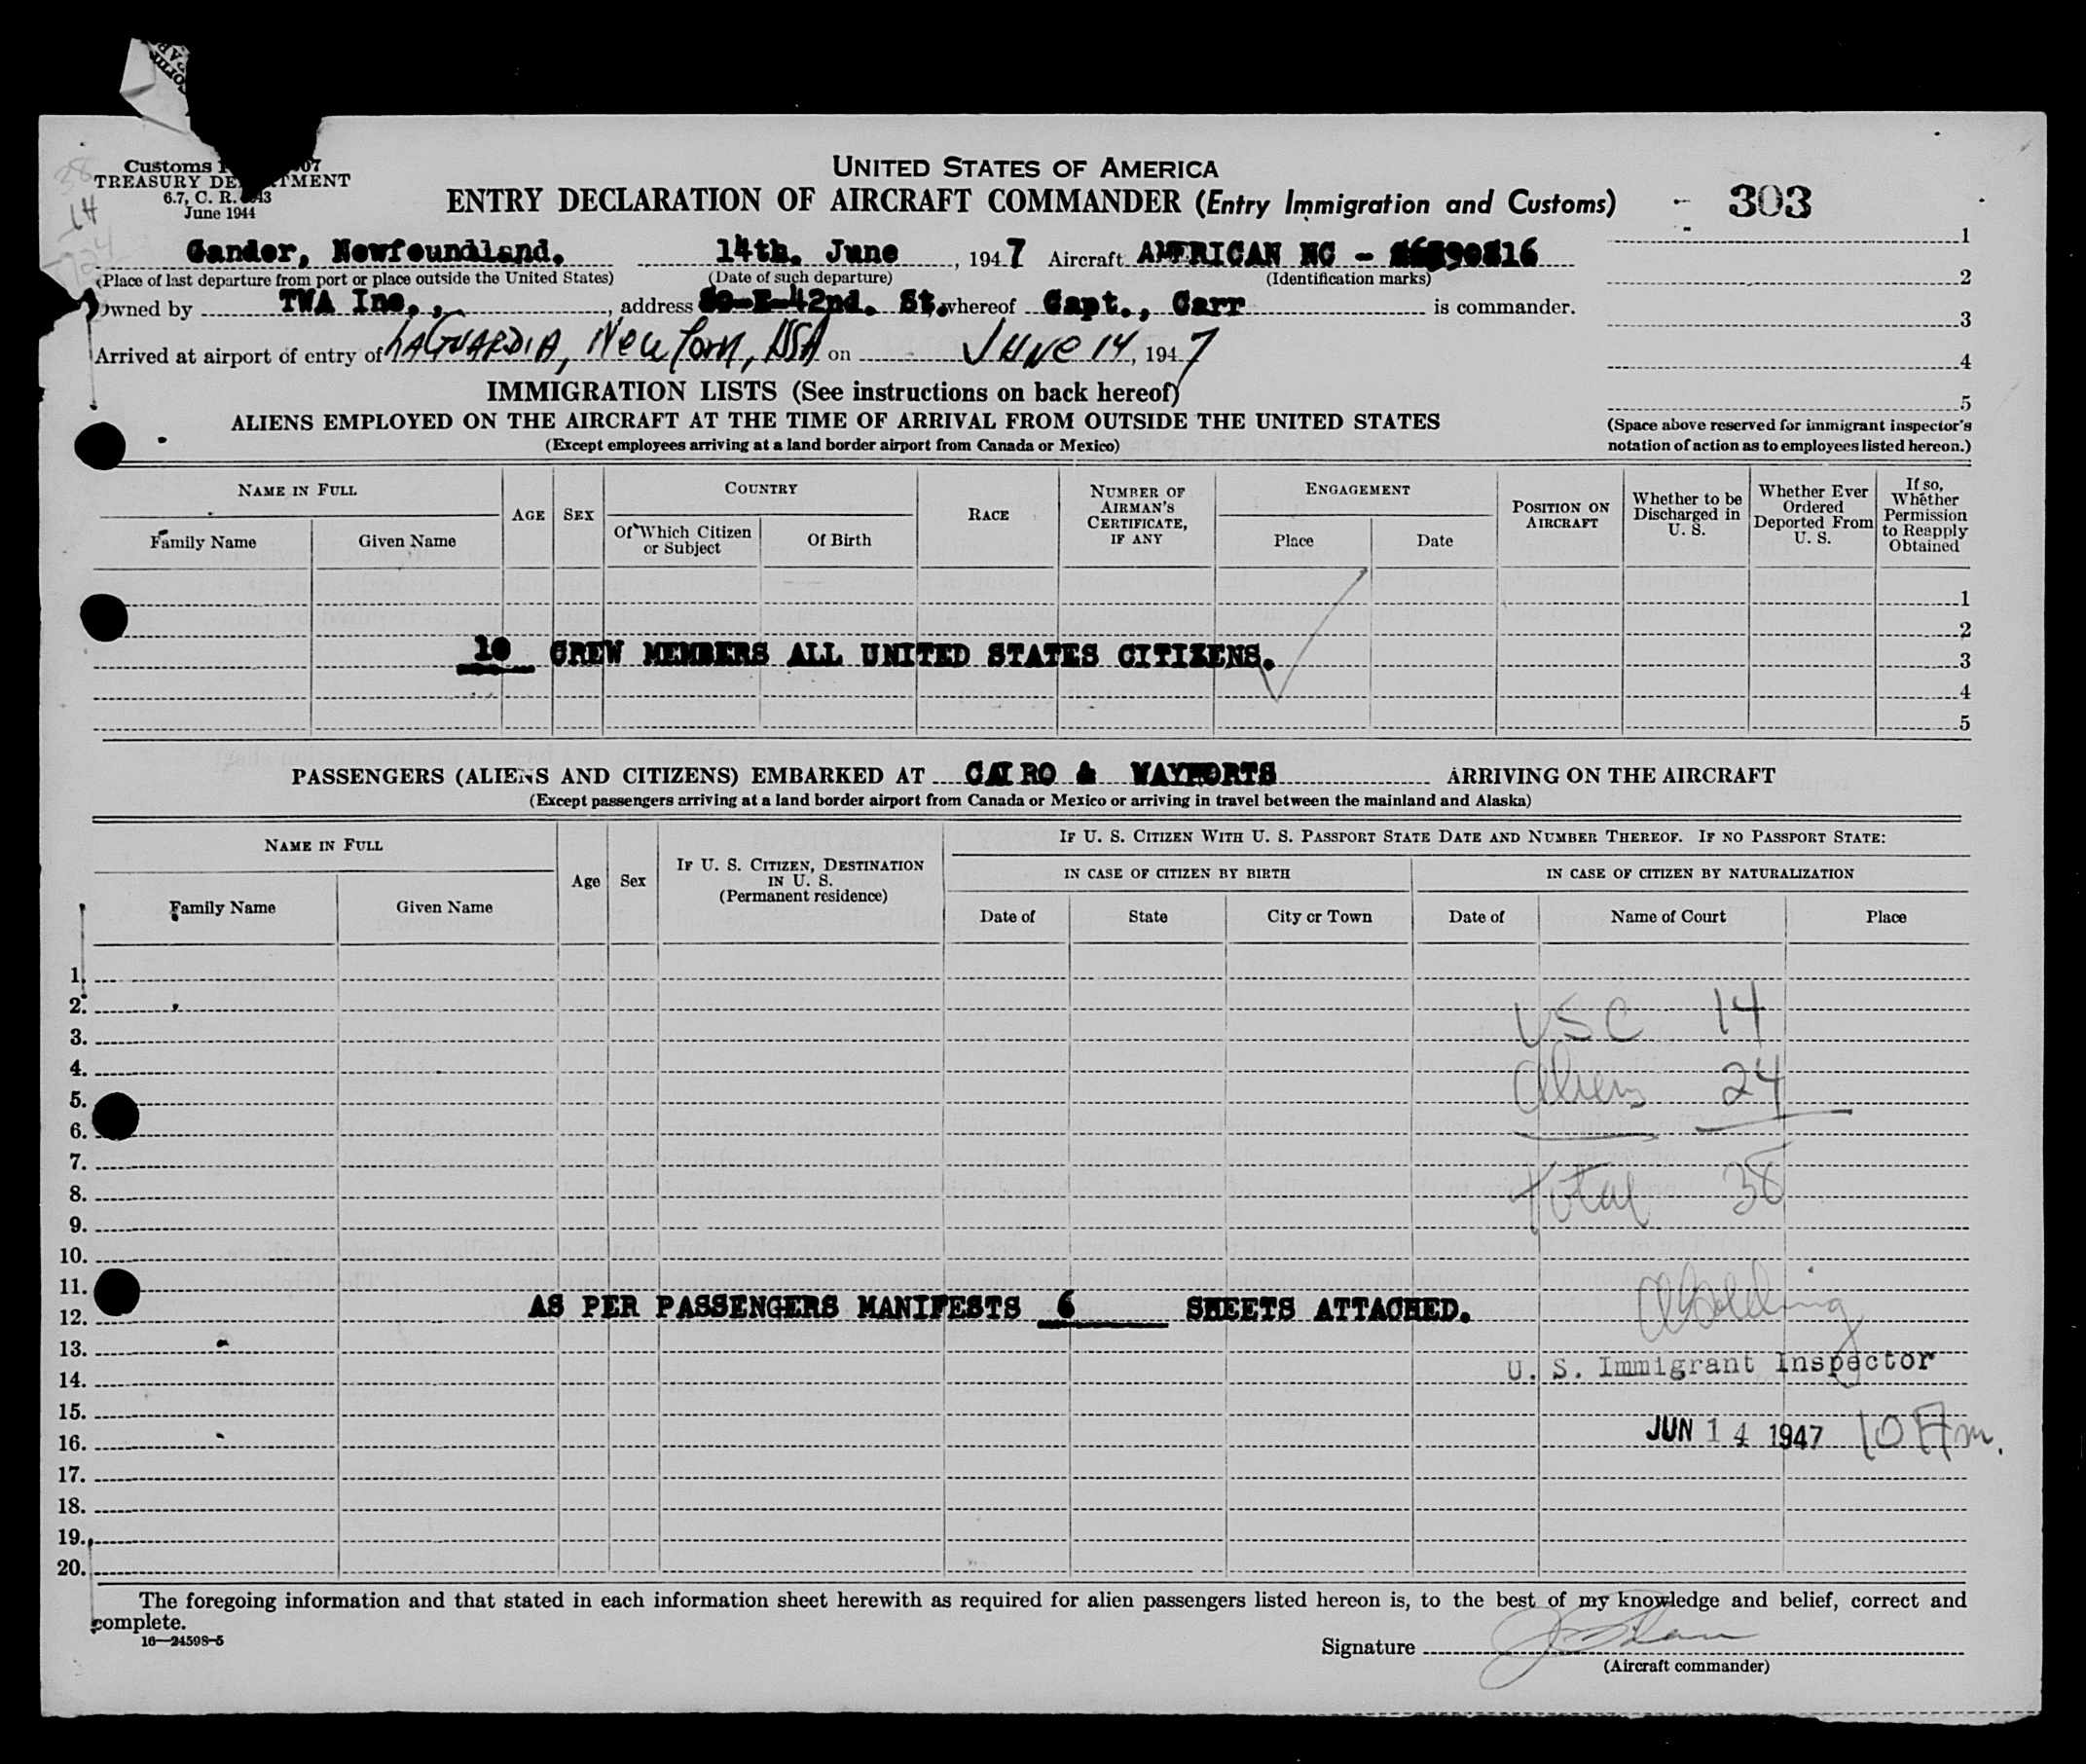 UNITED STATES OF AMERICA
ENTRY DECLARATION OF AIRCRAFT COMMANDER (Entry Immigration and Customs)
- 303
Customs
TREASURY DEPARTMENT
6.7, C. R.
June 1944
38
14
24
Gander, Newfoundland. 14th. June, 1947 Aircraft AMERICAN NC -
(Place of last departure from port or place outside the United States) (Date of such departure) (Identification marks)
Owned by TWA Inc., , address 42nd. St. whereof Capt., Carr is commander.
Arrived at airport of entry of LAGUARDIA, New York, USA on JUNE 14, 1947
1
2
3
4
5
(Space above reserved for immigrant inspector's
notation of action as to employees listed hereon.)
IMMIGRATION LISTS (See instructions on back hereof)
ALIENS EMPLOYED ON THE AIRCRAFT AT THE TIME OF ARRIVAL FROM OUTSIDE THE UNITED STATES
(Except employees arriving at a land border airport from Canada or Mexico)
NAME IN FULL
Family Name
Given Name
AGE
SEX
COUNTRY
Of Which Citizen
or Subject
Of Birth
RACE
NUMBER OF
AIRMAN'S
CERTIFICATE,
IF ANY
ENGAGEMENT
Place
Date
POSITION ON
AIRCRAFT
Whether to be
Discharged in
U. S.
Whether Ever
Ordered
Deported From
U. S.
If so,
Whether
Permission
to Reapply
Obtained
1
2
10 CREW MEMBERS ALL UNITED STATES CITIZENS.
3
4
5
PASSENGERS (ALIENS AND CITIZENS) EMBARKED AT CAIRO & WAYPORTS ARRIVING ON THE AIRCRAFT
(Except passengers arriving at a land border airport from Canada or Mexico or arriving in travel between the mainland and Alaska)
NAME IN FULL
Family Name
Given Name
Age
Sex
IF U. S. CITIZEN, DESTINATION
IN U. S.
(Permanent residence)
IF U. S. CITIZEN WITH U. S. PASSPORT STATE DATE AND NUMBER THEREOF. IF NO PASSPORT STATE:
IN CASE OF CITIZEN BY BIRTH
IN CASE OF CITIZEN BY NATURALIZATION
Date of
State
City or Town
Date of
Name of Court
Place
1.
2.
3. USC 14
4.
5. Aliens 24
6.
7.
8. Total 38
9.
10.
11.
12. AS PER PASSENGERS MANIFESTS 6 SHEETS ATTACHED.
13.
14. U. S. Immigrant Inspector
15.
16. JUN 14 1947 10 Am.
17.
18.
19.
20.
The foregoing information and that stated in each information sheet herewith as required for alien passengers listed hereon is, to the best of my knowledge and belief, correct and
complete.
16—24598-5
Signature
(Aircraft commander)